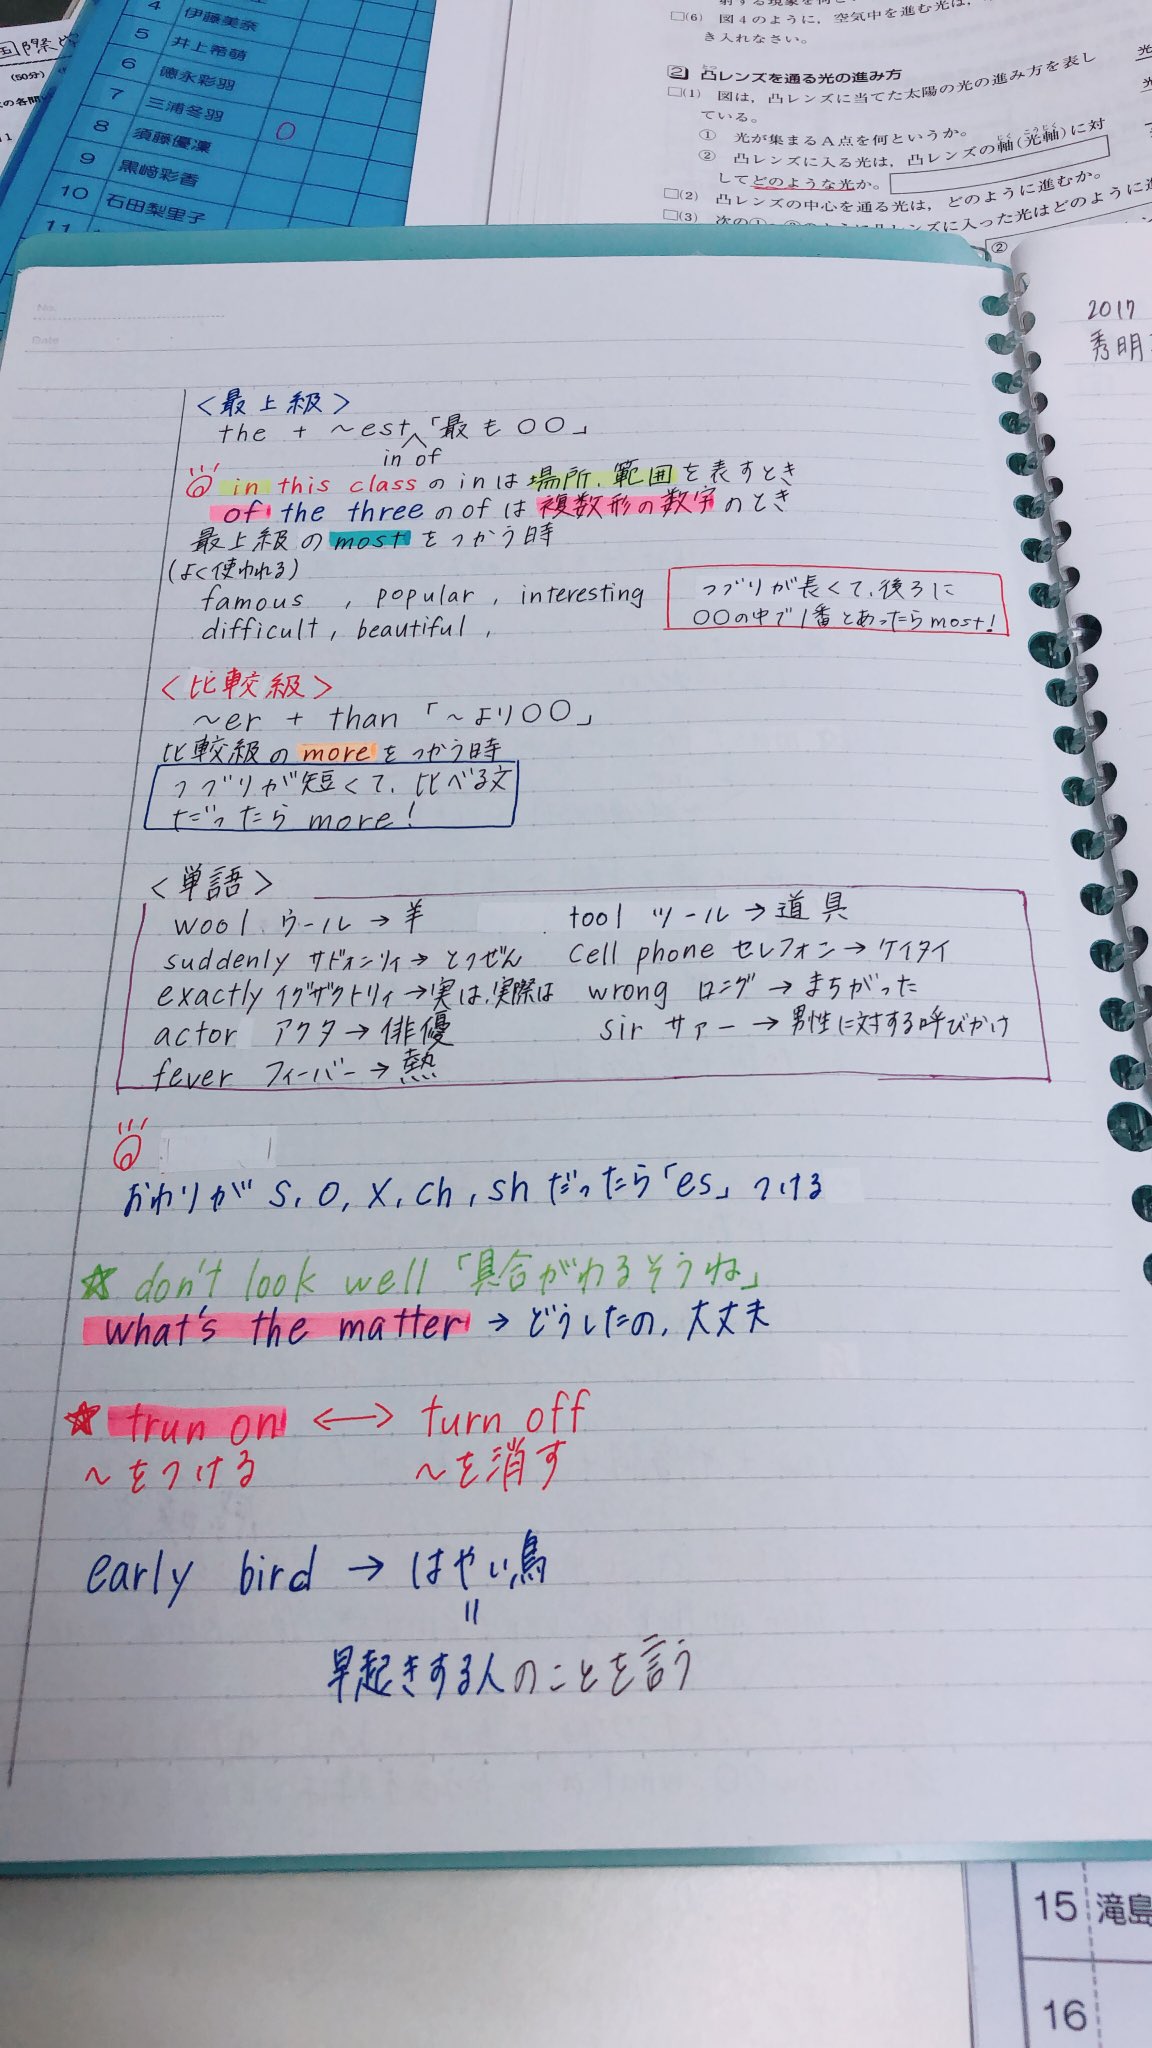 4 伊藤美奈
5 井上希萌
6 德永彩羽
7 三浦冬羽
8 須藤優凜 O
9 黒﨑彩香
10 石田梨里子
11
(50分)
□(6) 図4のように，空気中を進む光は，
き入れなさい。
2 凸レンズを通る光の進み方
□(1) 図は，凸レンズに当てた太陽の光の進み方を表し
ている。
① 光が集まるA点を何というか。
② 凸レンズに入る光は，凸レンズの軸(光軸)に対
してどのような光か。
□(2) 凸レンズの中心を通る光は，どのように進むか。
□(3)
②
2017
秀明
No.
Date
<最上級>
the + ~est 「最も○○」
in of
in this class のinは場所、範囲を表すとき
of the three のofは複数形の数字のとき
最上級のmostをつかう時
(よく使われる)
famous , popular , interesting
difficult , beautiful ,
つづりが長くて、後ろに
○○の中で1番とあったらmost!
<比較級>
~er + than 「~より○○」
比較級のmoreをつかう時
つづりが短くて、比べる文
だったら more!
<単語>
wool ウール→羊 tool ツール→道具
suddenly サドォンリィ→とつぜん cell phone セレフォン→ケイタイ
exactly イグザクトリィ→実は、実際は wrong ロング→まちがった
actor アクタ→俳優 sir サァー→男性に対する呼びかけ
fever フィーバー→熱
おわりがs, o, x, ch, shだったら「es」つける
☆ don't look well 「具合がわるそうね」
what's the matter → どうしたの、大丈夫
☆ trun on ⟷ turn off
~をつける ~を消す
early bird → はやい鳥
=
早起きする人のことを言う
15 滝島
16